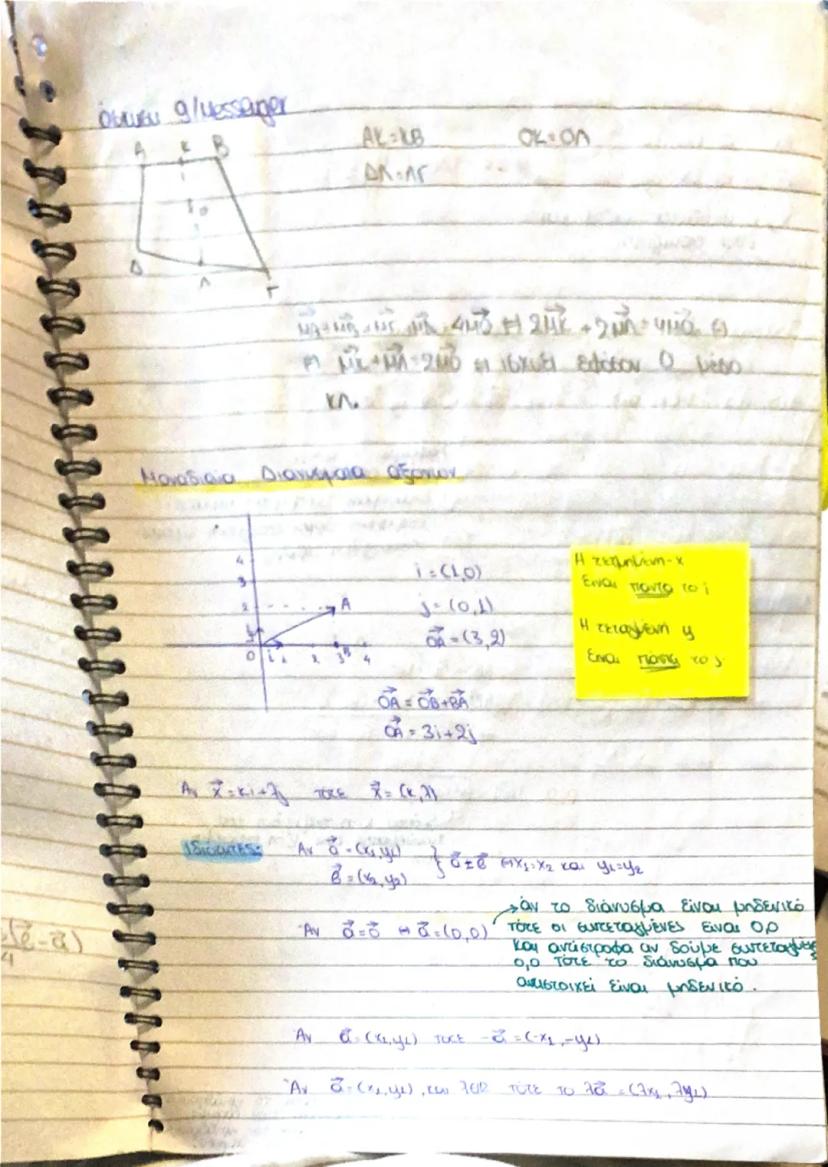 9/messenger
A K B
AK=KB OK=OΛ
ΔΛ=ΛΓ
O
Δ
Λ
Γ
4MO ⇔ 2MK + 2MΛ = 4MO ⇔
⇔ MK + MΛ = 2MO ⇔ ισχύει εφόσον O μέσο
ΚΛ.
Μοναδιαία Διανύσματα αξόνων
4
3
2 A
0 i 1 2 3 B 4
i = (1,0)
j = (0,1)
OA = (3,2)
OA = OB + BA
OA = 3i+2j
Η τετμημένη-x
Είναι πάντα το i
Η τεταγμένη y
Είναι πάντα το j
Αν x = κi+λj τότε x = (κ,λ)
Ιδιότητες: Αν α = (x1,y1)
β = (x2,y2)
⇔ x1=x2 και y1=y2
Αν α=0 ⇔ α=(0,0)
→ αν το διάνυσμα είναι μηδενικό
τότε οι συντεταγμένες είναι 0,0
και αντίστροφα αν δούμε συντεταγμένες
0,0 τότε το διάνυσμα που
αντιστοιχεί είναι μηδενικό.
Αν α=(x1,y1) τότε -α=(-x1,-y1)
Αν α=(x1,y1) και λ∈R τότε το λα=(λx1,λy1)